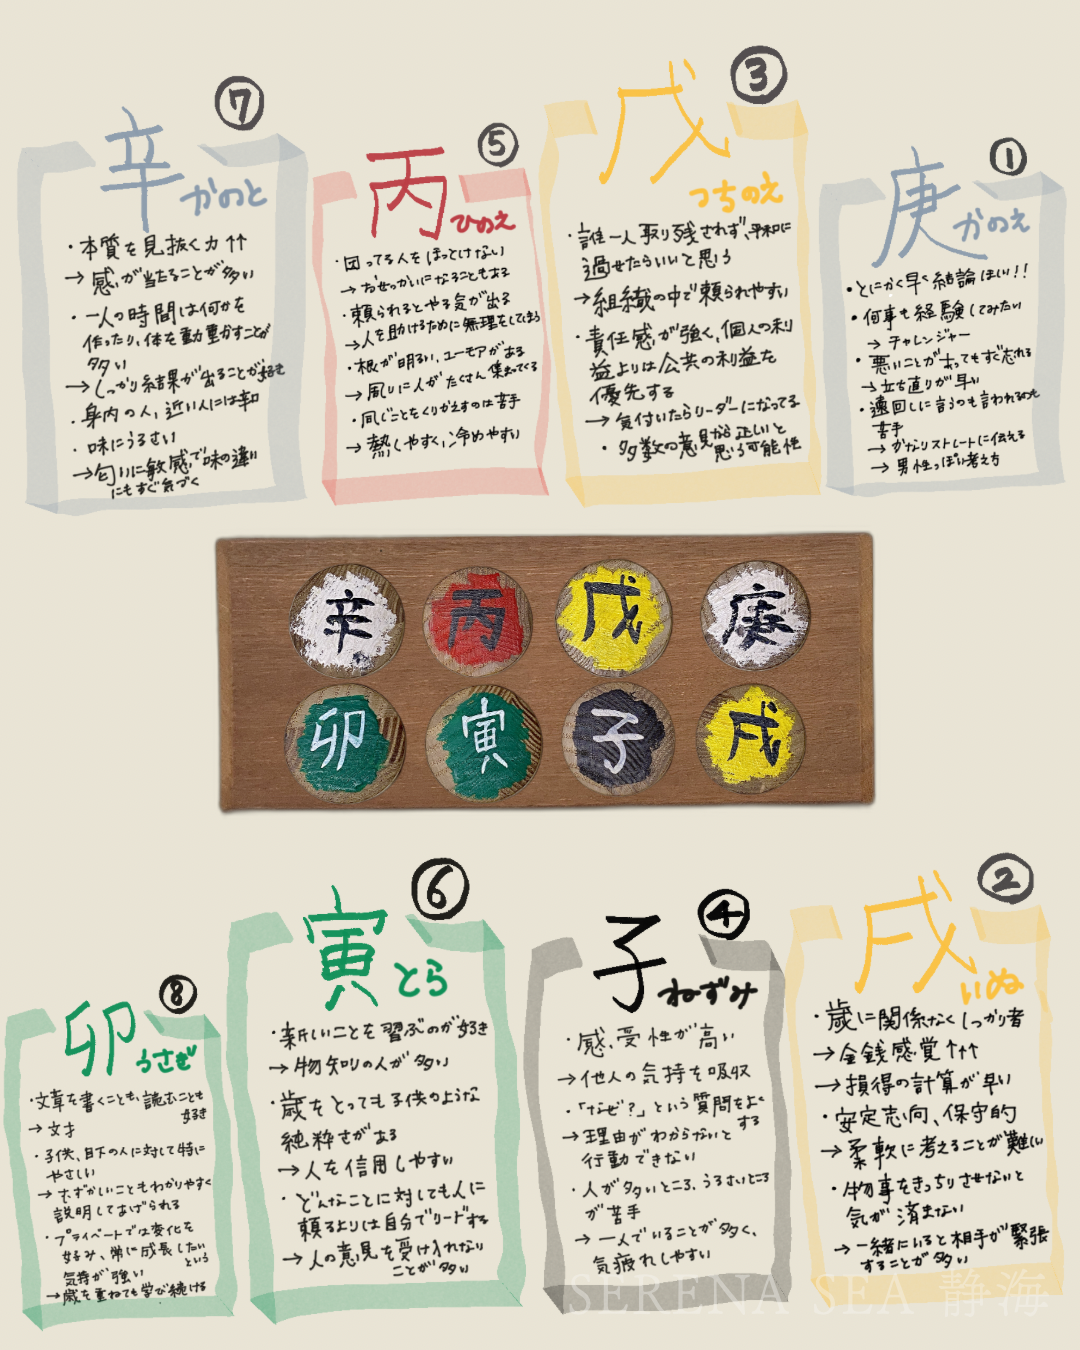 ⑦
辛 かのと
・本質を見抜く力↑↑
→感が当たることが多い
・一人の時間は何かを
作ったり、体を動かすことが
多い
→しっかり結果が出ることが好き
・身内の人、近い人には辛口
・味にうるさい
→匂いに敏感で味の違い
にもすぐ気づく
⑤
丙 ひのえ
・困ってる人をほっとけない
→おせっかいになることもある
・頼られるとやる気が出る
→人を助けるために無理をしてしまう
・根が明るい、ユーモアがある
→周りに人がたくさん集まってくる
・同じことをくりかえすのは苦手
→熱しやすく、冷めやすい
③
戊 つちのえ
・誰一人取り残されず、平和に
過せたらいいと思う
→組織の中で頼られやすい
・責任感が強く、個人の利
益よりは公共の利益を
優先する
→気付いたらリーダーになってる
・多数の意見から正しいと
思う可能性
①
庚 かのえ
・とにかく早く結論ほしい!!
・何事も経験してみたい
→チャレンジャー
・悪いことがあってもすぐ忘れる
→立ち直りが早い
・遠回しに言うのも言われるのも
苦手
→かなりストレートに伝える
→男性っぽい考え方
辛 丙 戊 庚
卯 寅 子 戌
⑧
卯 うさぎ
・文章を書くことも、読むことも
好き
→文才
・子供、目下の人に対して特に
やさしい
→むずかしいこともわかりやすく
説明してあげられる
・プライベートでは変化を
好み、常に成長したい
という
気持が強い
→歳を重ねても学び続ける
⑥
寅 とら
・新しいことを習ぶのが好き
→物知りの人が多い
・歳をとっても子供のような
純粋さがある
→人を信用しやすい
・どんなことに対しても人に
頼るよりは自分でリードする
→人の意見を受け入れない
ことが多い
④
子 ねずみ
・感受性が高い
→他人の気持を吸収
・「なぜ?」という質問をよく
する
→理由がわからないと
行動できない
・人が多いところ、うるさいところ
が苦手
→一人でいることが多く、
気疲れしやすい
②
戌 いぬ
・歳に関係なくしっかり者
→金銭感覚↑↑↑
→損得の計算が早い
・安定志向、保守的
→柔軟に考えることが難しい
・物事をきっちりさせないと
気が済まない
→一緒にいると相手が緊張
することが多い
SERENA SEA 静海